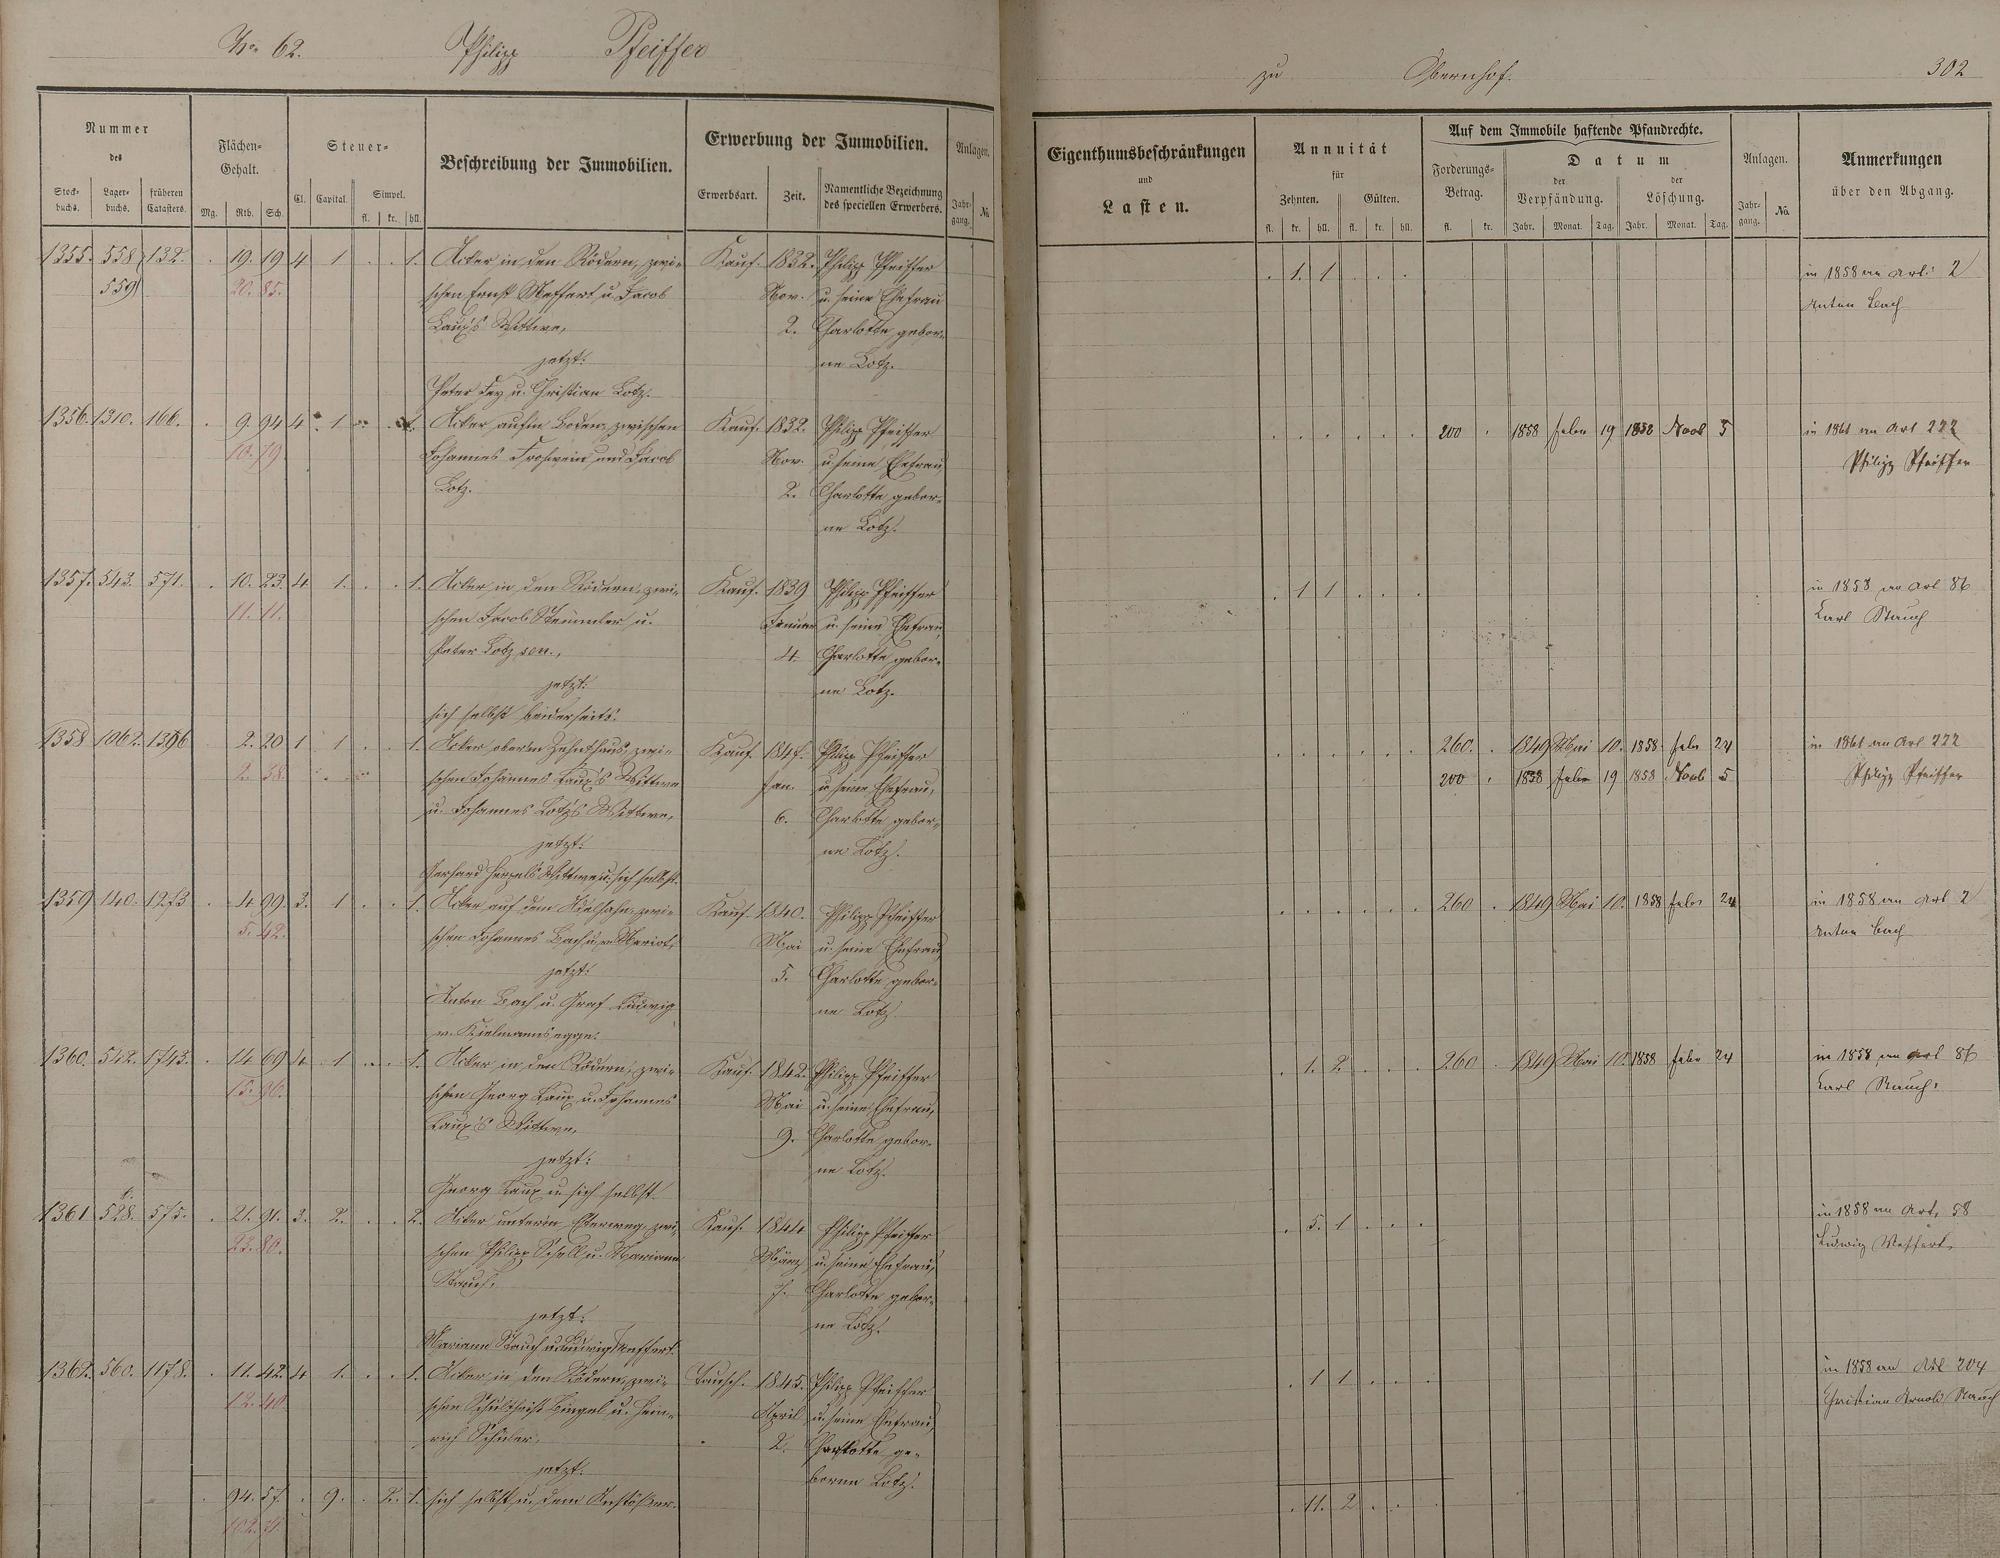 No. 62. Philipp Pfeiffer
zu Obernhof. 302
Nummer
des
Stock-
buchs.
Lager-
buchs.
früheren
Catasters.
Flächen-
Gehalt.
Mg. Rth. Sch.
Steuer-
Cl. Capital. Simpel.
fl. kr. hll.
Beschreibung der Immobilien.
Erwerbung der Immobilien.
Erwerbsart. Zeit. Namentliche Bezeichnung
des speciellen Erwerbers.
Anlagen.
Jahr-
gang. No.
Eigenthumsbeschränkungen
und
Lasten.
Annuität
für
Zehnten. Gülten.
fl. kr. hll. fl. kr. hll.
Auf dem Immobile haftende Pfandrechte.
Forderungs-
Betrag.
fl. kr.
Datum
der
Verpfändung.
Jahr. Monat. Tag.
der
Löschung.
Jahr. Monat. Tag.
Anlagen.
Jahr-
gang. No.
Anmerkungen
über den Abgang.
1355. 558 132. . 19. 19 4 1 . . 1. Acker in den Rödern, zwi- Kauf. 1832. Philipp Pfeiffer . 1. 1 . . . in 1858 an Art. 2
559 20. 85. schen Ernst Meffert u. Jacob Nov. u. seine Ehefrau Anton Bach
Laux's Wittwe, 2. Charlotte gebor-
jetzt: ne Lotz.
Peter Fey u. Christian Lotz.
1356. 1310. 166. . 9. 94 4 1 Acker auf'm Boden, zwischen Kauf. 1832. Philipp Pfeiffer . . . . . . 200 . 1858 Febr 19 1858 Novb 5 in 1861 an Art 222
10. 79. Johannes Frohwein und Jacob Nov. u. seine Ehefrau Philipp Pfeiffer
Lotz. 2. Charlotte gebor-
ne Lotz.
1357. 543. 571. . 10. 23. 4 1. . . 1. Acker in den Rödern, zwi- Kauf. 1839 Philipp Pfeiffer . 1 1 . . . in 1858 an Art 86
11. 11. schen Jacob Stemmler u. Januar u. seine Ehefrau Karl Rauch
Peter Lotz sen., 4. Charlotte gebor-
jetzt: ne Lotz.
sich selbst beiderseits.
1358 1062. 1396 2. 20 1 1 . . 1. Acker ober'm Zehnthaus, zwi- Kauf. 1847. Philipp Pfeiffer . . . . . . 260. . 1849 Mai 10. 1858 Febr 24 in 1861 an Art 222
2. 38. schen Johannes Laux's Wittwe Jan. u. seine Ehefrau, 200 . 1858 Febr 19 1858 Novb 5 Philipp Pfeiffer
u. Johannes Lotz's Wittwe, 6. Charlotte gebor-
jetzt: ne Lotz.
Wittwe u. sich selbst.
1359 140. 1273 . 4. 99. 3. 1 . . 1. Acker auf dem zwi- Kauf. 1840. Philipp Pfeiffer . . . . . . 260 . 1849 Mai 10. 1858 Febr 24 in 1858 an Art 2
5. 42. schen Johannes Bach u. v. Marioth, Mai u. seine Ehefrau, Anton Bach
jetzt: 5. Charlotte gebor-
Anton Bach u. Graf Ludwig ne Lotz
v. Kielmannsegge.
1360. 542. 1743. . 14 69 4 1 . . 1. Acker in den Rödern, zwi- Kauf. 1842. Philipp Pfeiffer . 1. 2 . . . 260 . 1849 Mai 10. 1858 Febr 24 in 1858 an Art 86
15. 96. schen Georg Laux u. Johannes Mai u. seine Ehefrau, Karl Rauch.
Laux's Wittwe, 9. Charlotte gebor-
jetzt: ne Lotz.
Georg Laux u. sich selbst
1361 528. 575. . 21. 91. 3. 2. . . 2. Acker unter'm zwi- Kauf. 1844 Philipp Pfeiffer . 5. 1 . . . in 1858 an Art. 58
23. 80. schen Philipp Schall u. Mariana März u. seine Ehefrau, Ludwig Meffert.
Rauch, 7. Charlotte gebor-
jetzt: ne Lotz.
Mariana Rauch u. Ludwig Meffert.
1362. 560. 1178. . 11. 42. 4 1. . . 1. Acker in den Rödern, zwi- Tausch. 1845. Philipp Pfeiffer . 1 1 . . . in 1858 an Art 204
12. 40 schen Schultheiß Bingel u. Hein- April u. seine Ehefrau, Christian Arnold Rauch
rich Schüler, 2. Charlotte ge-
jetzt: borne Lotz.
. 94. 57. . 9. . 2. 1. sich selbst u. dem Anstößer. . 11. 2 . . .
102. 71.